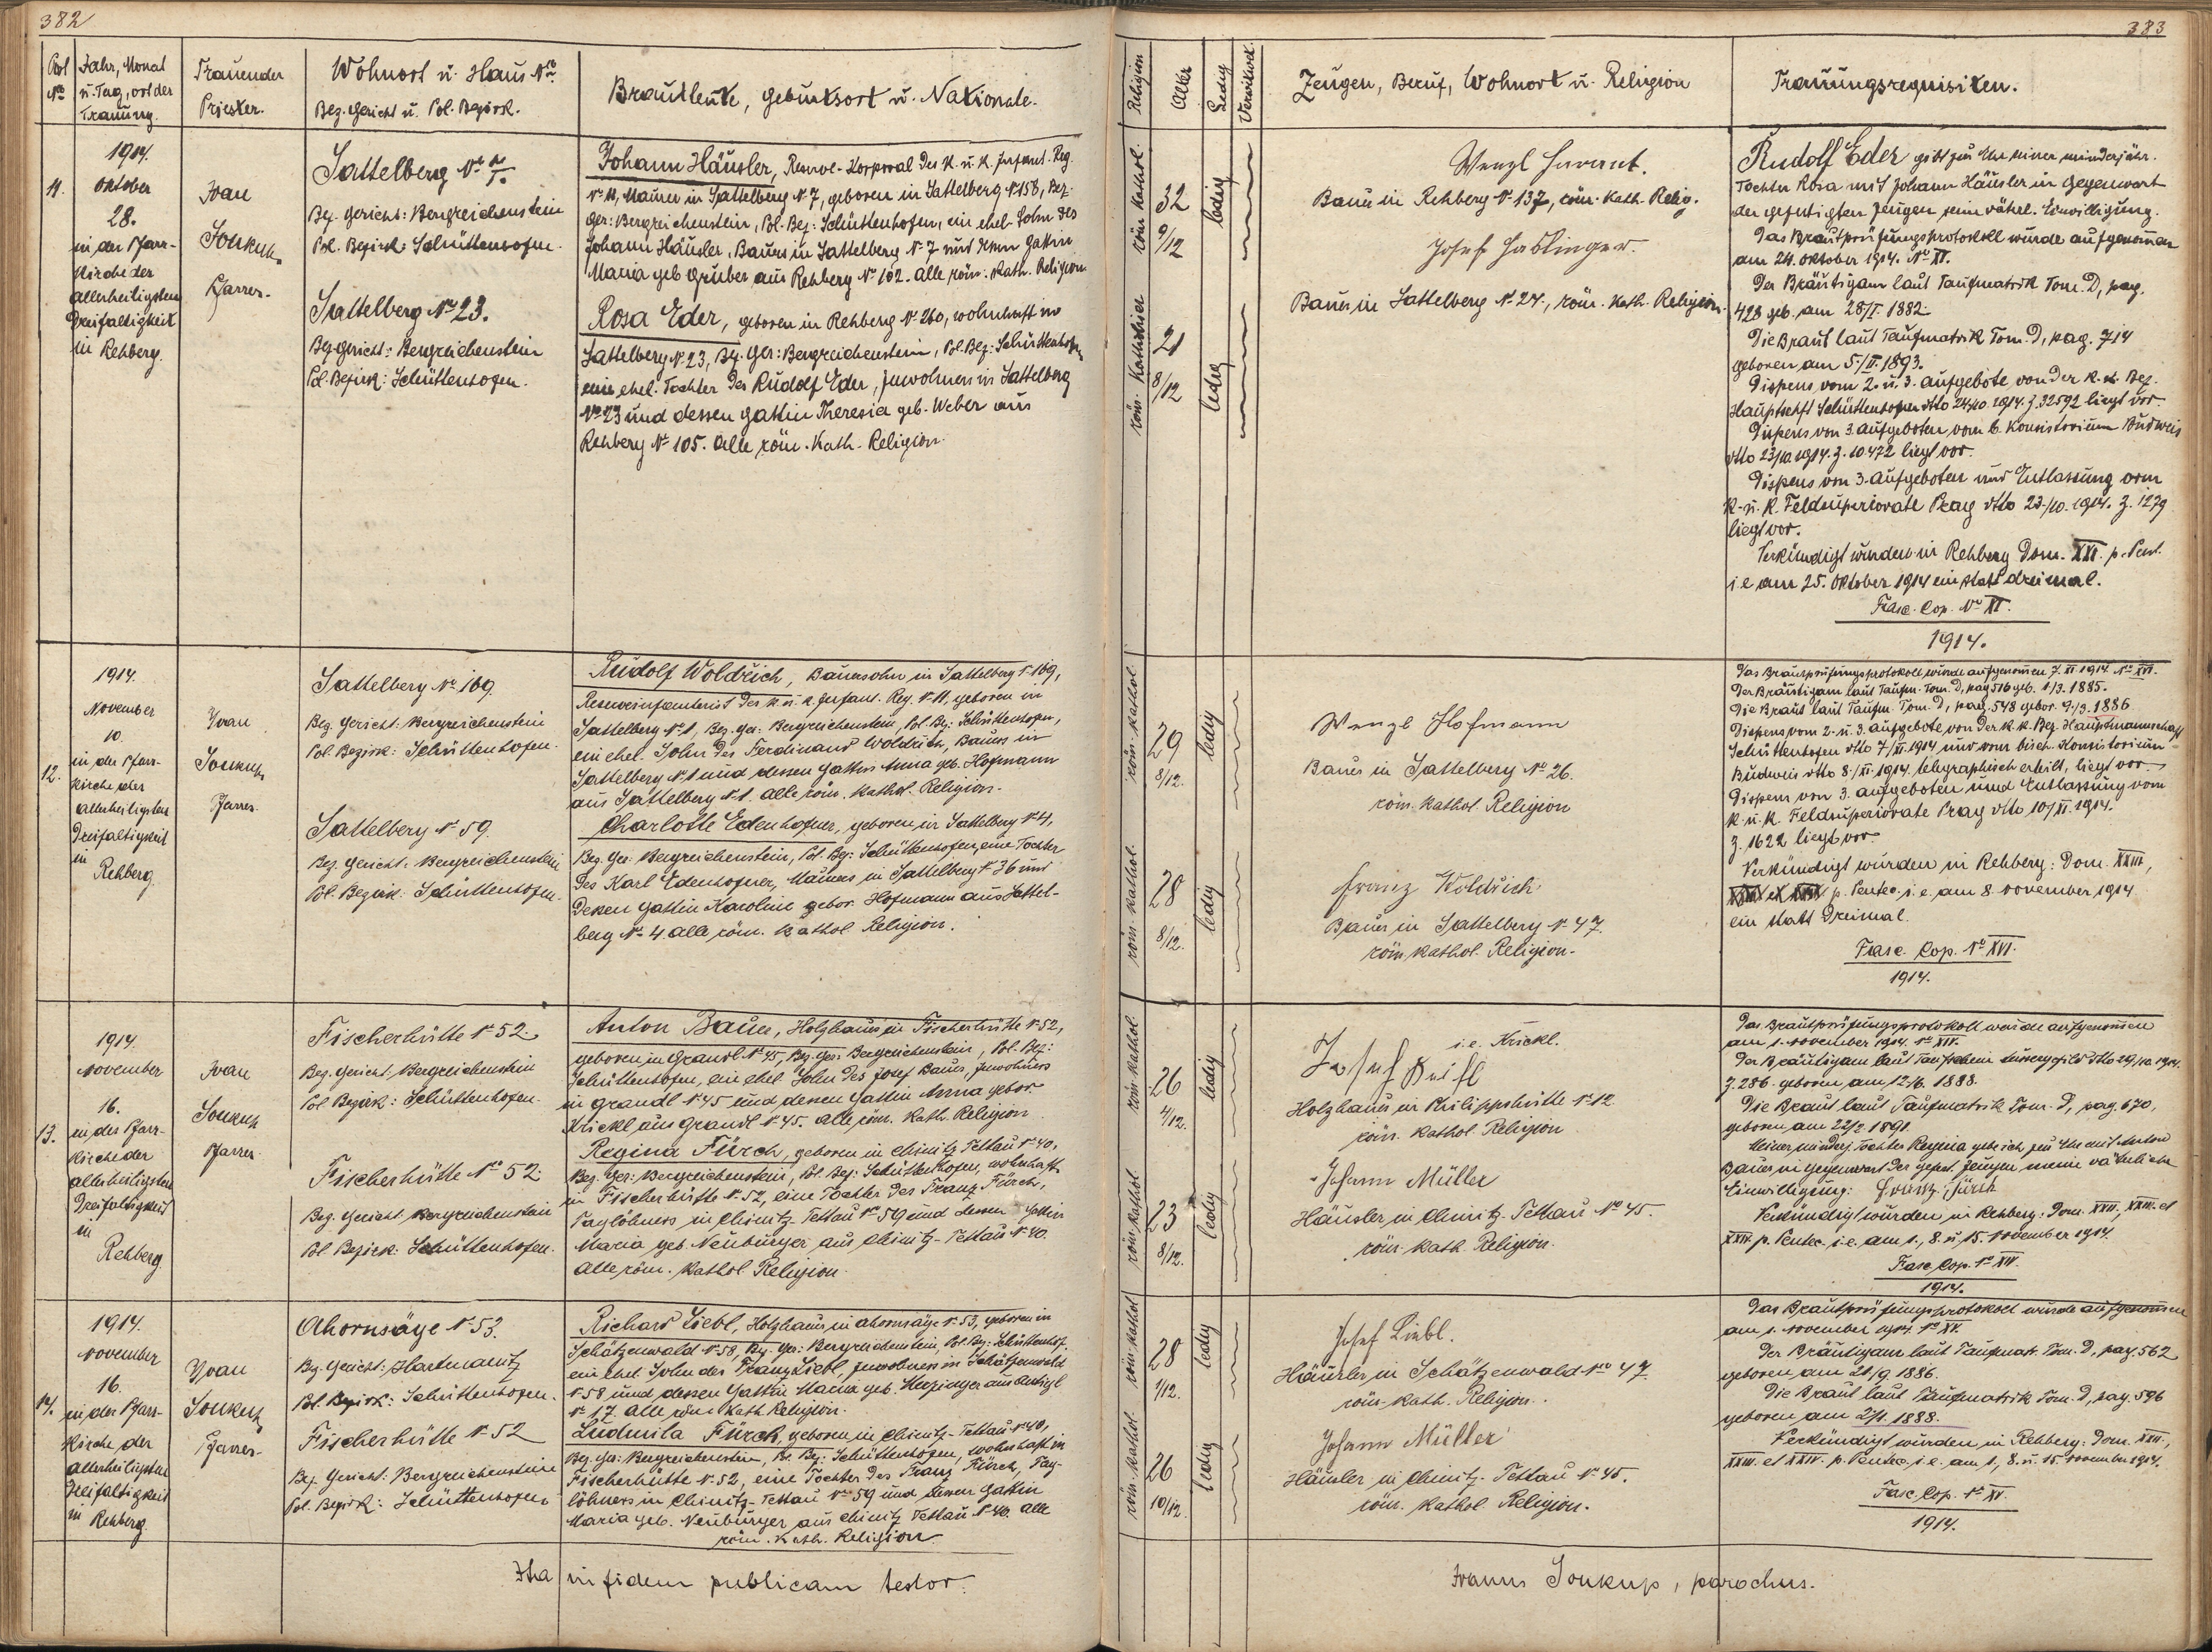 382
Post No
Jahr, Monat
u. Tag, ort der
Trauung.
Trauender
Priester.
Wohnort u. Haus No
Bez. Gericht u. Pol. Bezirk.
Brautleute, Geburtsort u. Nationale.
1914.
11.
Oktober
28.
in der Pfarr-
Kirche der
allerheiligsten
Dreifaltigkeit
in Rehberg.
Ivan
Soukup
Pfarrer.
Sattelberg No 7.
Bez. Gericht: Bergreichenstein
Pol. Bezirk: Schüttenhofen.
Sattelberg No 23.
Bez. Gericht: Bergreichenstein
Pol. Bezirk: Schüttenhofen.
Johann Häusler, Reserve-Korporal des K. u. K. Infant. Reg.
No 11, Maurer in Sattelberg No 7, geboren in Sattelberg No 158, Bez.
Ger: Bergreichenstein, Pol. Bez: Schüttenhofen, ein ehel. Sohn des
Johann Häusler, Bauers in Sattelberg No 7 und dessen Gattin
Maria geb. Gruber aus Rehberg No 102. Alle röm. Kath. Religion
Rosa Eder, geboren in Rehberg No 260, wohnhaft in
Sattelberg No 23, Bez. Ger: Bergreichenstein, Pol. Bez: Schüttenhofen
eine ehel. Tochter des Rudolf Eder, Inwohners in Sattelberg
No 23 und dessen Gattin Theresia geb. Weber aus
Rehberg No 105. Alle röm. Kath. Religion.
1914.
12.
November
10.
in der Pfarr-
Kirche der
allerheiligsten
Dreifaltigkeit
in
Rehberg.
Ivan
Soukup
Pfarrer.
Sattelberg No 169.
Bez. Gericht: Bergreichenstein
Pol. Bezirk: Schüttenhofen.
Sattelberg No 59.
Bez. Gericht: Bergreichenstein
Pol. Bezirk: Schüttenhofen.
Rudolf Woldřich, Bauersohn in Sattelberg No 169,
Reserveinfanterist des K. u. K. Infant. Reg. No 11, geboren in
Sattelberg No 1, Bez. Ger: Bergreichenstein, Pol. Bez: Schüttenhofen,
ein ehel. Sohn des Ferdinand Woldřich, Bauers in
Sattelberg No 1 und dessen Gattin Anna geb. Hofmann
aus Sattelberg No 1. Alle röm. Kathol. Religion.
Charlotte Edenhofner, geboren in Sattelberg No 4,
Bez. Ger: Bergreichenstein, Pol. Bez: Schüttenhofen, eine Tochter
des Karl Edenhofner, Maurers in Sattelberg No 36 und
dessen Gattin Karoline gebor. Hofmann aus Sattel-
berg No 4 alle röm. Kathol. Religion.
1914.
13.
November
16.
in der Pfarr-
Kirche der
allerheiligsten
Dreifaltigkeit
in
Rehberg.
Ivan
Soukup
Pfarrer.
Fischerhütte No 52.
Bez. Gericht Bergreichenstein
Pol. Bezirk: Schüttenhofen.
Fischerhütte No 52.
Bez. Gericht Bergreichenstein
Pol. Bezirk: Schüttenhofen.
Anton Bauer, Holzhauer in Fischerhütte No 52,
geboren in Grandl No 45, Bez. Ger: Bergreichenstein, Pol. Bez:
Schüttenhofen, ein ehel. Sohn des Josef Bauer, Inwohners
in Grandl No 45 und dessen Gattin Anna gebor.
Krickl aus Grandl No 45. Alle röm. Kath. Religion.
Regina Fürch, geboren in Chinitz-Tettau No 40,
Bez. Ger: Bergreichenstein, Pol. Bez: Schüttenhofen, wohnhaft
in Fischerhütte No 52, eine Tochter des Franz Fürch,
Taglöhners in Chinitz-Tettau No 59 und dessen Gattin
Maria geb. Neuburger aus Chinitz-Tettau No 40.
Alle röm. Kathol. Religion.
1914.
14.
November
16.
in der Pfarr-
Kirche der
allerheiligsten
Dreifaltigkeit
in Rehberg.
Ivan
Soukup
Pfarrer.
Ahornsäge No 53.
Bez. Gericht: Hartmanitz
Pol. Bezirk: Schüttenhofen.
Fischerhütte No 52
Bez. Gericht: Bergreichenstein
Pol. Bezirk: Schüttenhofen
Richard Liebl, Holzhauer in Ahornsäge No 53, geboren in
Schätzenwald No 58, Bez. Ger: Bergreichenstein, Pol. Bez: Schüttenhof.
ein ehel. Sohn des Franz Liebl, Inwohners in Schätzenwald
No 58 und dessen Gattin Maria geb.
No 17. Alle röm. Kath. Religion.
Ludmila Fürch, geboren in Chinitz-Tettau No 40,
Bez. Ger: Bergreichenstein, Pol. Bez: Schüttenhofen, wohnhaft in
Fischerhütte No 52, eine Tochter des Franz Fürch, Tag-
löhners in Chinitz-Tettau No 59 und dessen Gattin
Maria geb. Neuburger aus Chinitz Tettau No 40. Alle
röm. Kath. Religion.
Ita in fidem publicam testor.
383
Religion
Alter
Ledig
Verwitwet
Zeugen, Beruf, Wohnort u. Religion
Trauungsrequisiten.
röm. Kathol.
32
9/12
ledig
röm. Katholisch
21
8/12
ledig
Wenzl
Bauer in Rehberg No 137, röm. Kath. Relig.
Josef Haslinger.
Bauer in Sattelberg No 24, röm. Kath. Religion.
Rudolf Eder gibt zur Ehe seiner minderjähr.
Tochter Rosa mit Johann Häusler in Gegenwart
der gefertigten Zeugen seine väterl. Einwilligung.
Das Brautprüfungsprotokoll wurde aufgenommen
am 24. Oktober 1914. No XI.
Der Bräutigam laut Taufmatrik Tom. D, pag.
428 geb. am 28/I. 1882.
Die Braut laut Taufmatrik Tom. D, pag. 714
geboren am 5./II. 1893.
Dispens vom 2. u. 3. Aufgebote von der K. K. Bez.
Hauptschft Schüttenhofen dtto 24/10. 1914. Z. 32592 liegt vor.
Dispens von 3. Aufgeboten vom b. Konsistorium Budweis
dtto 23/10. 1914. Z. 10472 liegt vor.
Dispens von 3. Aufgeboten und Entlassung vom
K. u. K. Feldsuperiorate Prag dtto 23./10. 1914. Z. 1279
liegt vor.
Verkündigt wurden in Rehberg Dom. XXI. p. Pent.
i. e am 25. Oktober 1914 ein statt dreimal.
Fasc. Cop. No XI.
1914.
röm. kathol.
29
8/12.
ledig
röm. kathol.
28
8/12.
ledig
Wenzl Hofmann
Bauer in Sattelberg No 26.
röm. kathol. Religion
Franz Woldřich
Bauer in Sattelberg No 47.
röm. kathol. Religion.
Das Brautprüfungsprotokoll wurde aufgenommen 7. XI. 1914. No XVI.
Der Bräutigam laut Taufm. Tom. D, pag 516 geb. 1/3. 1885.
Die Braut laut Taufm. Tom. D, pag. 548 gebor. 9./3. 1886.
Dispens vom 2. u. 3. Aufgebote von der K. K. Bez. Hauptmannschaft
Schüttenhofen dtto 7/XI. 1914 und vom bisch. Konsistorium
Budweis dtto 8./XI. 1914. telegraphisch erteilt, liegt vor.
Dispens von 3. Aufgeboten und Entlassung vom
K. u. K. Feldsuperiorate Prag dtto 10/XI. 1914.
Z. 1622 liegt vor.
Verkündigt wurden in Rehberg: Dom. XXIII,
p. Pentec. i. e. am 8. November 1914
ein statt Dreimal.
Fasc. Cop. No XVI.
1914.
röm. kathol.
26
4/12.
ledig
röm. kathol.
23
8/12.
ledig
i. e. Krickl.
Josef
Holzhauer in Philippshütte No 12
röm. kathol. Religion
Johann Müller
Häusler in Chinitz-Tettau No 45.
röm. kath. Religion.
Das Brautprüfungsprotokoll wurde aufgenommen
am 1. November 1914. No XIV.
Der Bräutigam laut Taufschein dtto 29/10. 1914.
Z. 286. geboren am 12/6. 1888.
Die Braut laut Taufmatrik Tom. D, pag. 670,
geboren am 22/2. 1891.
Meiner minderj. Tochter Regina gebe ich zur Ehe mit Anton
Bauer in Gegenwart der gefert. Zeugen meine väterliche
Einwilligung: Franz Fürch
Verkündigt wurden in Rehberg: Dom. XXII., XXIII. et
XXIV. p. Pentec. i. e. am 1., 8. u. 15. November 1914.
Fasc. Cop. No XIV.
1914.
röm. kathol.
28
1/12.
ledig
röm. kathol.
26
10/12.
ledig
Josef Liebl.
Häusler in Schätzenwald No 47
röm. kath. Religion.
Johann Müller
Häusler in Chinitz-Tettau No 45.
röm. kathol. Religion.
Das Brautprüfungsprotokoll wurde aufgenommen
am 1. November 1914. No XV.
Der Bräutigam laut Taufmatr. Tom. D, pag. 562
geboren am 21/9. 1886.
Die Braut laut Taufmatrik Tom. D, pag. 596
geboren am 2/1. 1888.
Verkündigt wurden in Rehberg: Dom. XXII.,
XXIII. et XXIV. p. Pentec. i. e. am 1., 8. u. 15. November 1914.
Fasc. Cop. No XV.
1914.
Ivanus Soukup, parochus.